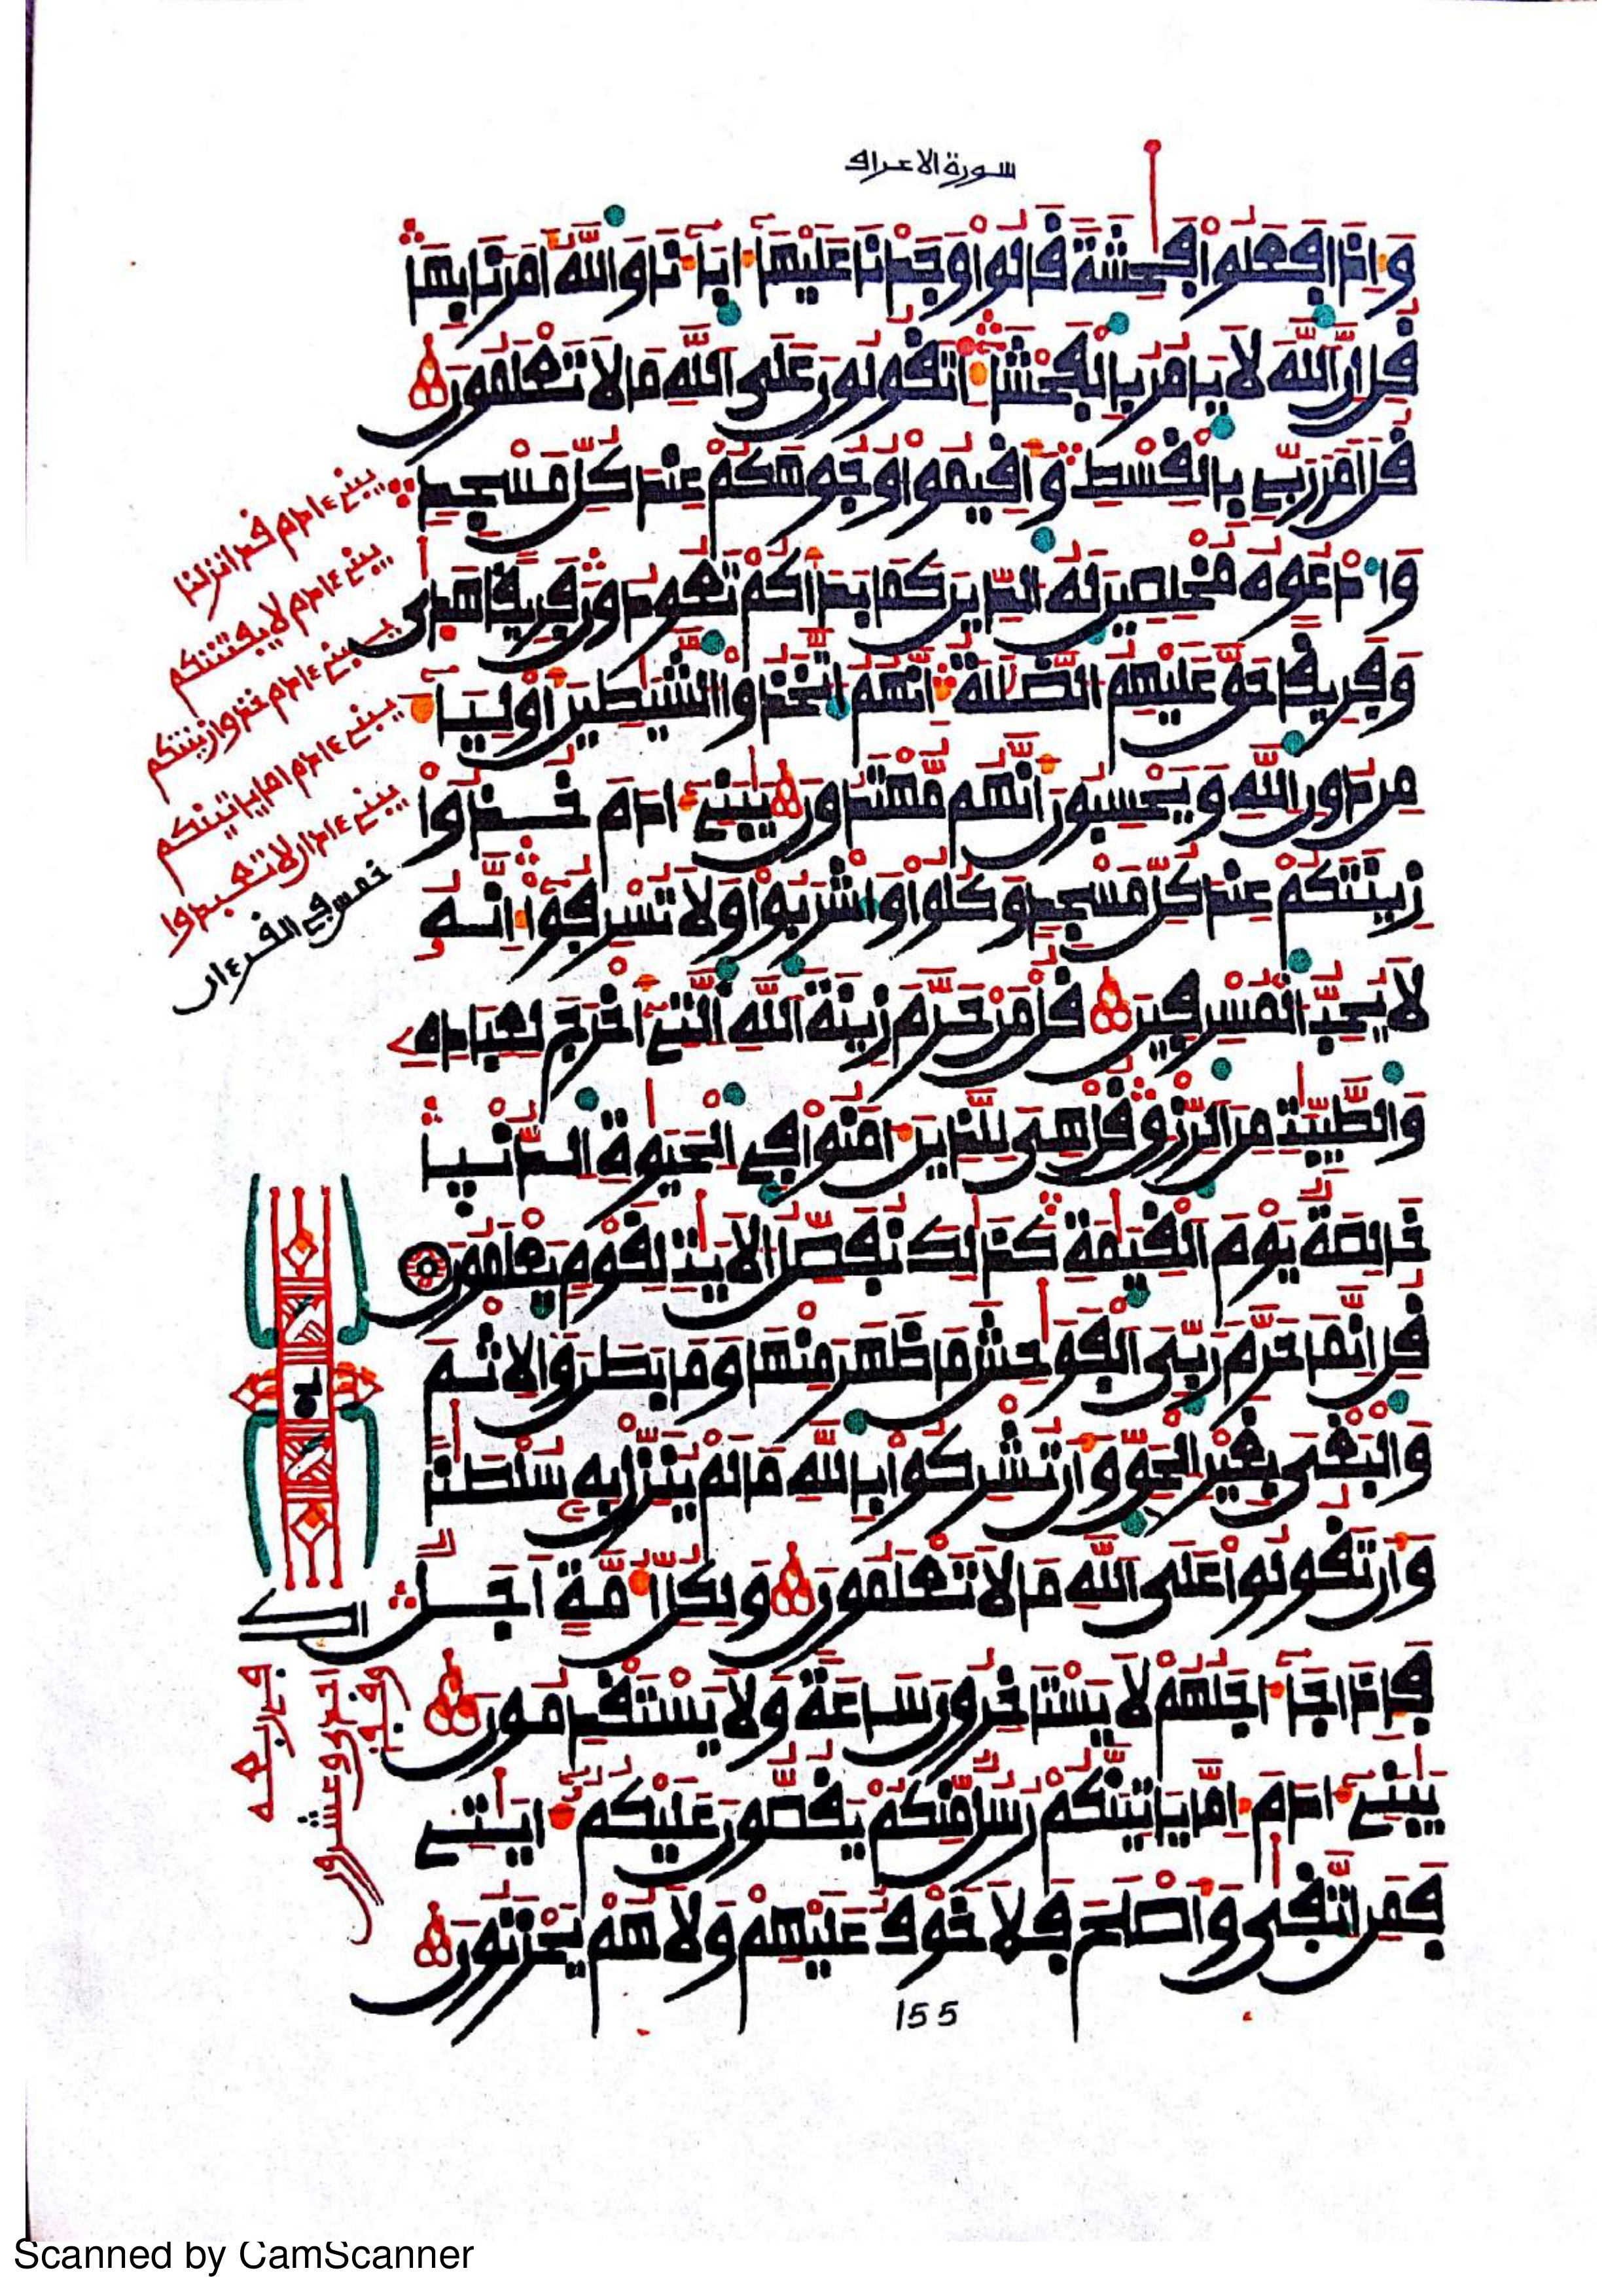 سورة الاعراف
وَإِذَا فَعَلُوا۟ فَٰحِشَةٗ قَالُوا۟ وَجَدْنَا عَلَيْهَآ ءَابَآءَنَا وَاللَّهُ أَمَرَنَا بِهَا
قُلِ انَّ اللَّهَ لَا يَامُرُ بِالْفَحْشَآءِ اَتَقُولُونَ عَلَى اللَّهِ مَا لَا تَعْلَمُونَ
قُلَ امَرَ رَبِّے بِالْقِسْطِ وَأَقِيمُوا۟ وُجُوهَكُمْ عِندَ كُلِّ مَسْجِدٖ
وَادْعُوهُ مُخْلِصِينَ لَهُ الدِّينَ كَمَا بَدَأَكُمْ تَعُودُونَ فَرِيقاً هَدَىٰ
وَفَرِيقاً حَقَّ عَلَيْهِمُ الضَّلَٰلَةُ إِنَّهُمُ اتَّخَذُوا۟ الشَّيَٰطِينَ أَوْلِيَآءَ
مِن دُونِ اللَّهِ وَيَحْسِبُونَ أَنَّهُم مُّهْتَدُونَ يَٰبَنِےٓ ءَادَمَ خُذُوا۟
زِينَتَكُمْ عِندَ كُلِّ مَسْجِدٖ وَكُلُوا۟ وَاشْرَبُوا۟ وَلَا تُسْرِفُوٓا۟ إِنَّهُۥ
لَا يُحِبُّ الْمُسْرِفِينَ قُلْ مَنْ حَرَّمَ زِينَةَ اللَّهِ الَّتِےٓ أَخْرَجَ لِعِبَادِهِۦ
وَالطَّيِّبَٰتِ مِنَ الرِّزْقِ قُلْ هِىَ لِلَّذِينَ ءَامَنُوا۟ فِے الْحَيَوٰةِ الدُّنْيَا
خَالِصَةٌ يَوْمَ الْقِيَٰمَةِ كَذَٰلِكَ نُفَصِّلُ الَايَٰتِ لِقَوْمٖ يَعْلَمُونَ
قُلِ انَّمَا حَرَّمَ رَبِّىَ الْفَوَٰحِشَ مَا ظَهَرَ مِنْهَا وَمَا بَطَنَ وَالِاثْمَ
وَالْبَغْىَ بِغَيْرِ الْحَقِّ وَأَن تُشْرِكُوا۟ بِاللَّهِ مَا لَمْ يُنَزِّلْ بِهِۦ سُلْطَٰناً
وَأَن تَقُولُوا۟ عَلَى اللَّهِ مَا لَا تَعْلَمُونَ وَلِكُلِّ أُمَّةٍ اَجَلٌ
فَإِذَا جَآءَ اجَلُهُمْ لَا يَسْتَاخِرُونَ سَاعَةً وَلَا يَسْتَقْدِمُونَ
يَٰبَنِےٓ ءَادَمَ إِمَّا يَاتِيَنَّكُمْ رُسُلٌ مِّنكُمْ يَقُصُّونَ عَلَيْكُمُۥٓ ءَايَٰتِے
فَمَنِ اتَّقَىٰ وَأَصْلَحَ فَلَا خَوْفٌ عَلَيْهِمْ وَلَا هُمْ يَحْزَنُونَ
يبنے ءادم قد انزلنا
يبنے ءادم لا يفتننكم
يبنے ءادم خذوا زينتكم
يبنے ءادم اما ياتينكم
يبنے ءادم ان لا تعبدوا
خمس في القرءان
155
Scanned by CamScanner